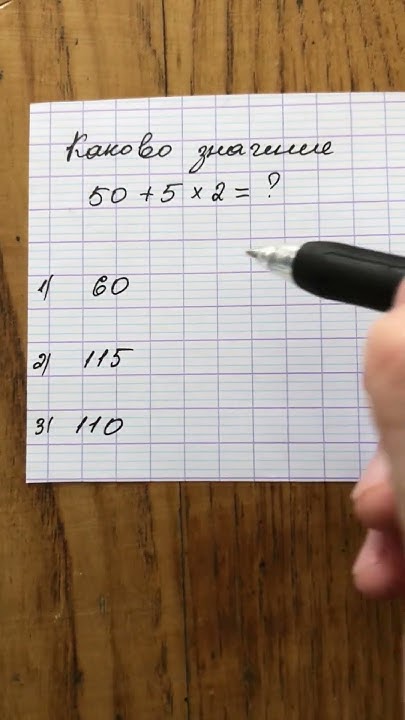 Каково значение
50 + 5 × 2 = ?
1) 60
2) 115
3) 110